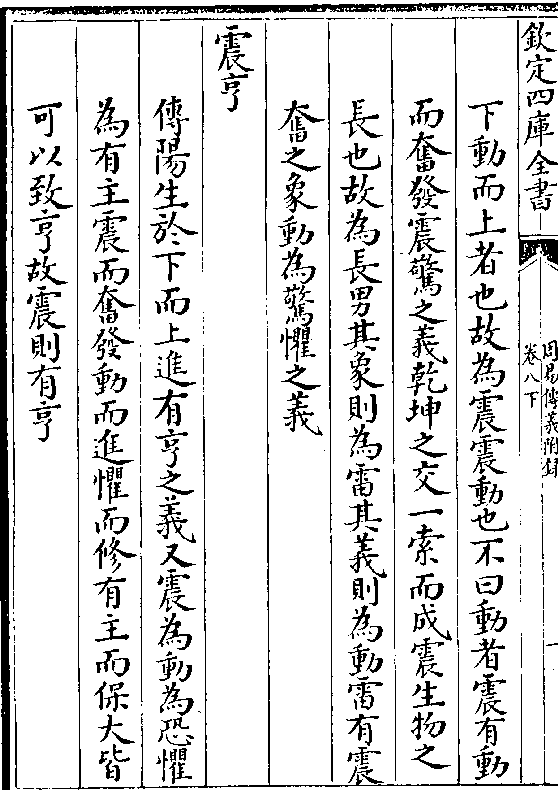 欽定四庫全書
周易傳義附錄
卷八下
一
下動而上者也故為震震動也不曰動者震有動
而奮發震驚之義乾坤之交一索而成震生物之
長也故為長男其象則為雷其義則為動雷有震
奮之象動為驚懼之義
震亨
傳陽生於下而上進有亨之義又震為動為恐懼
為有主震而奮發動而進懼而修有主而保大皆
可以致亨故震則有亨